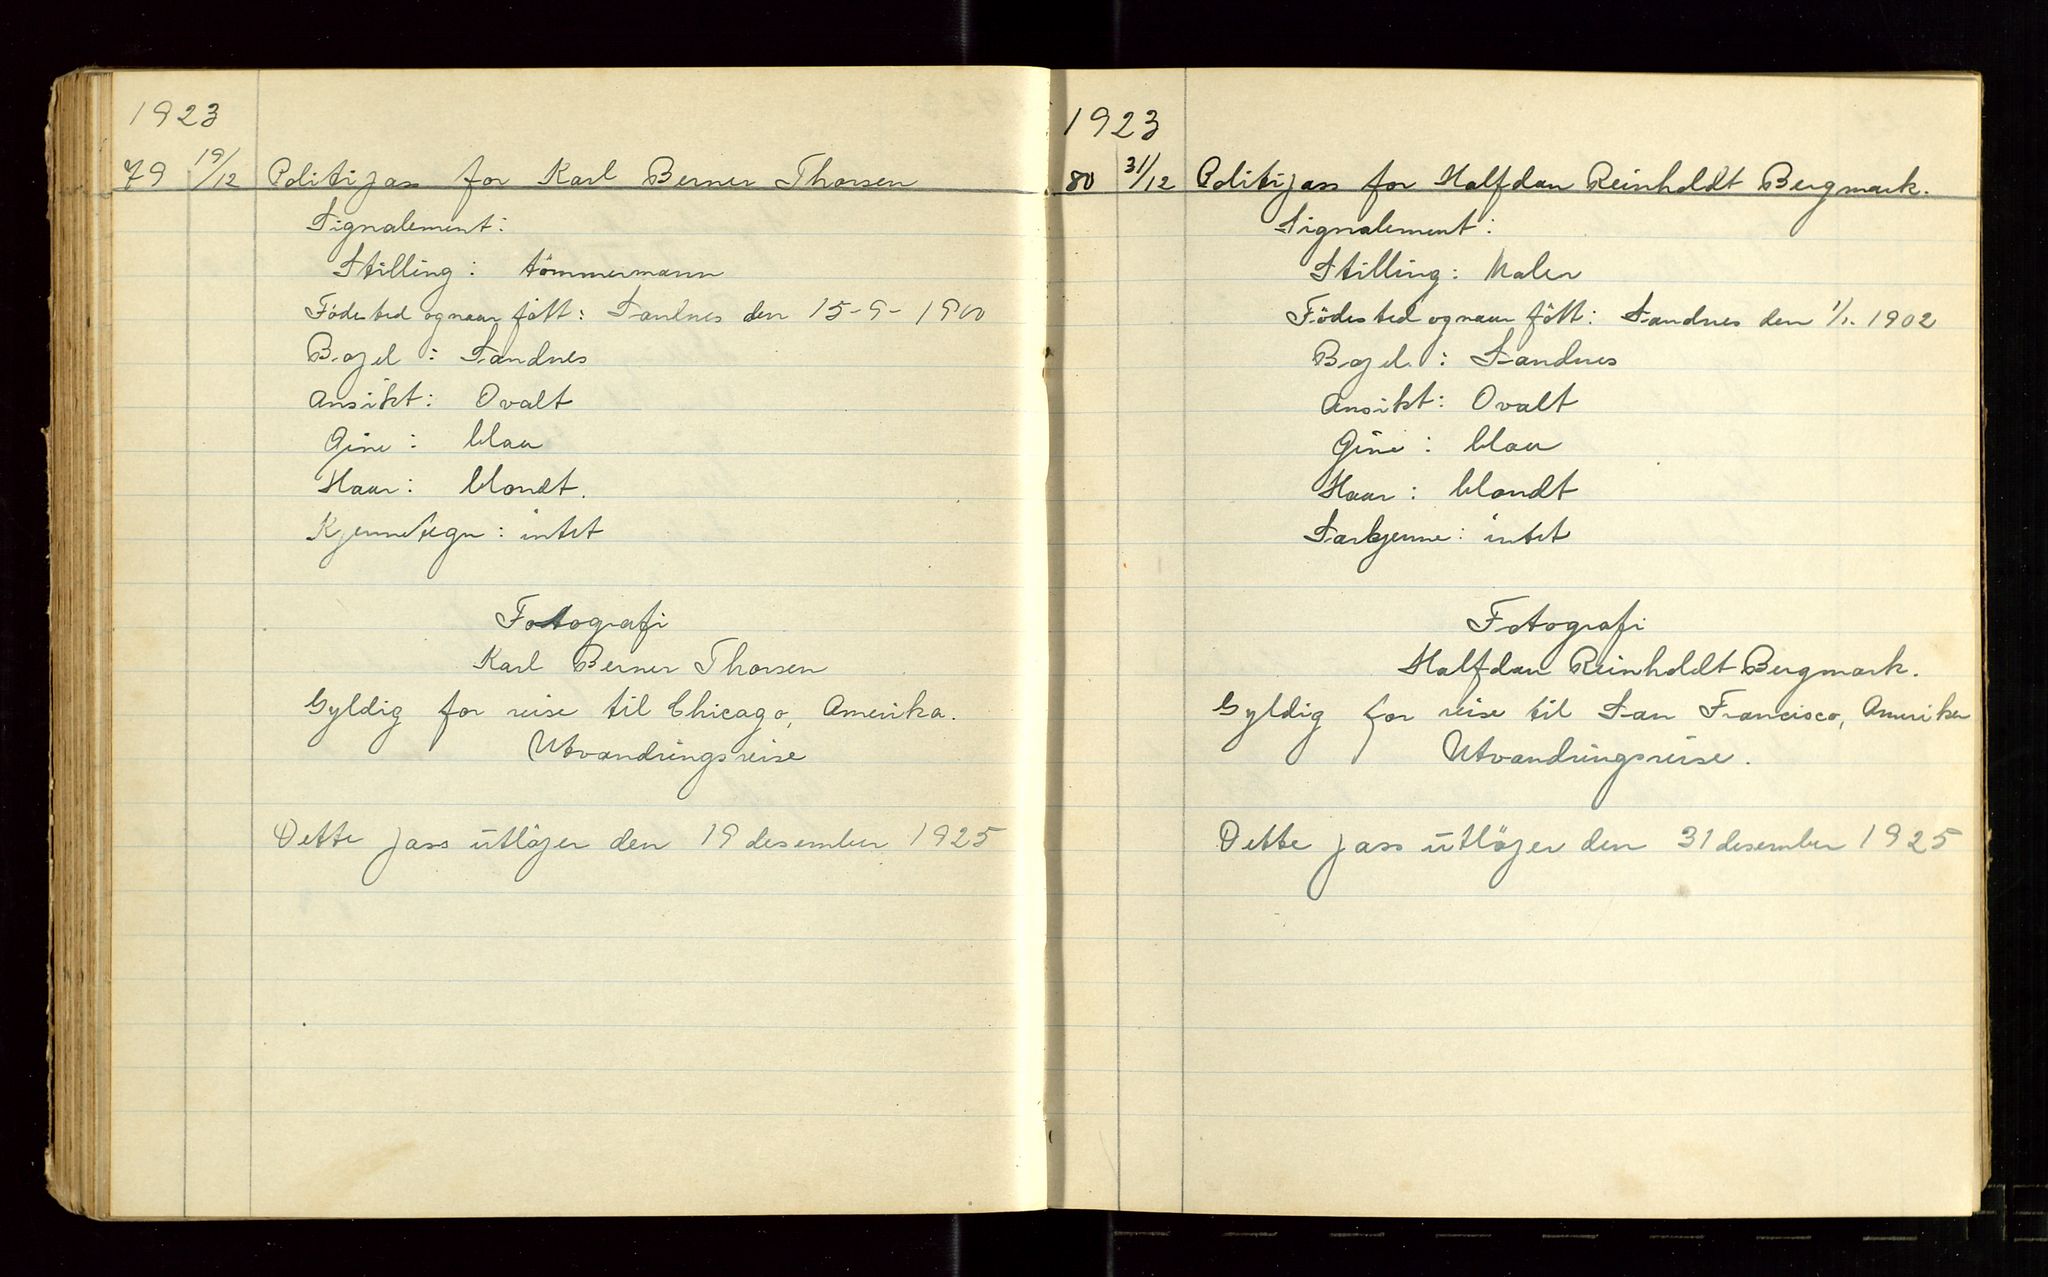 1923
79 19/12 Politipass for Karl Berner Thorsen
Signalement:
Stilling: tömmermann
Födested og naar fött: Sandnes den 15-9-1900
Bopel: Sandnes
Ansikt: Ovalt
Öine: blaa
Haar: blondt.
Kjennetegn: intet
Fotografi
Karl Berner Thorsen
Gyldig for reise til Chicago, Amerika.
Utvandringsreise
Dette pass utlöper den 19 desember 1925
1923
80 31/12 Politipass for Halfdan Reinholdt Bergmark.
Signalement:
Stilling: Maler
Födested og naar fött: Sandnes den 1/1. 1902
Bopel: Sandnes
Ansikt: Ovalt
Öine: blaa
Haar: blondt
Særkjenne: intet
Fotografi
Halfdan Reinholdt Bergmark.
Gyldig for reise til San Francisco, Amerika
Utvandringsreise.
Dette pass utlöper den 31 desember 1925